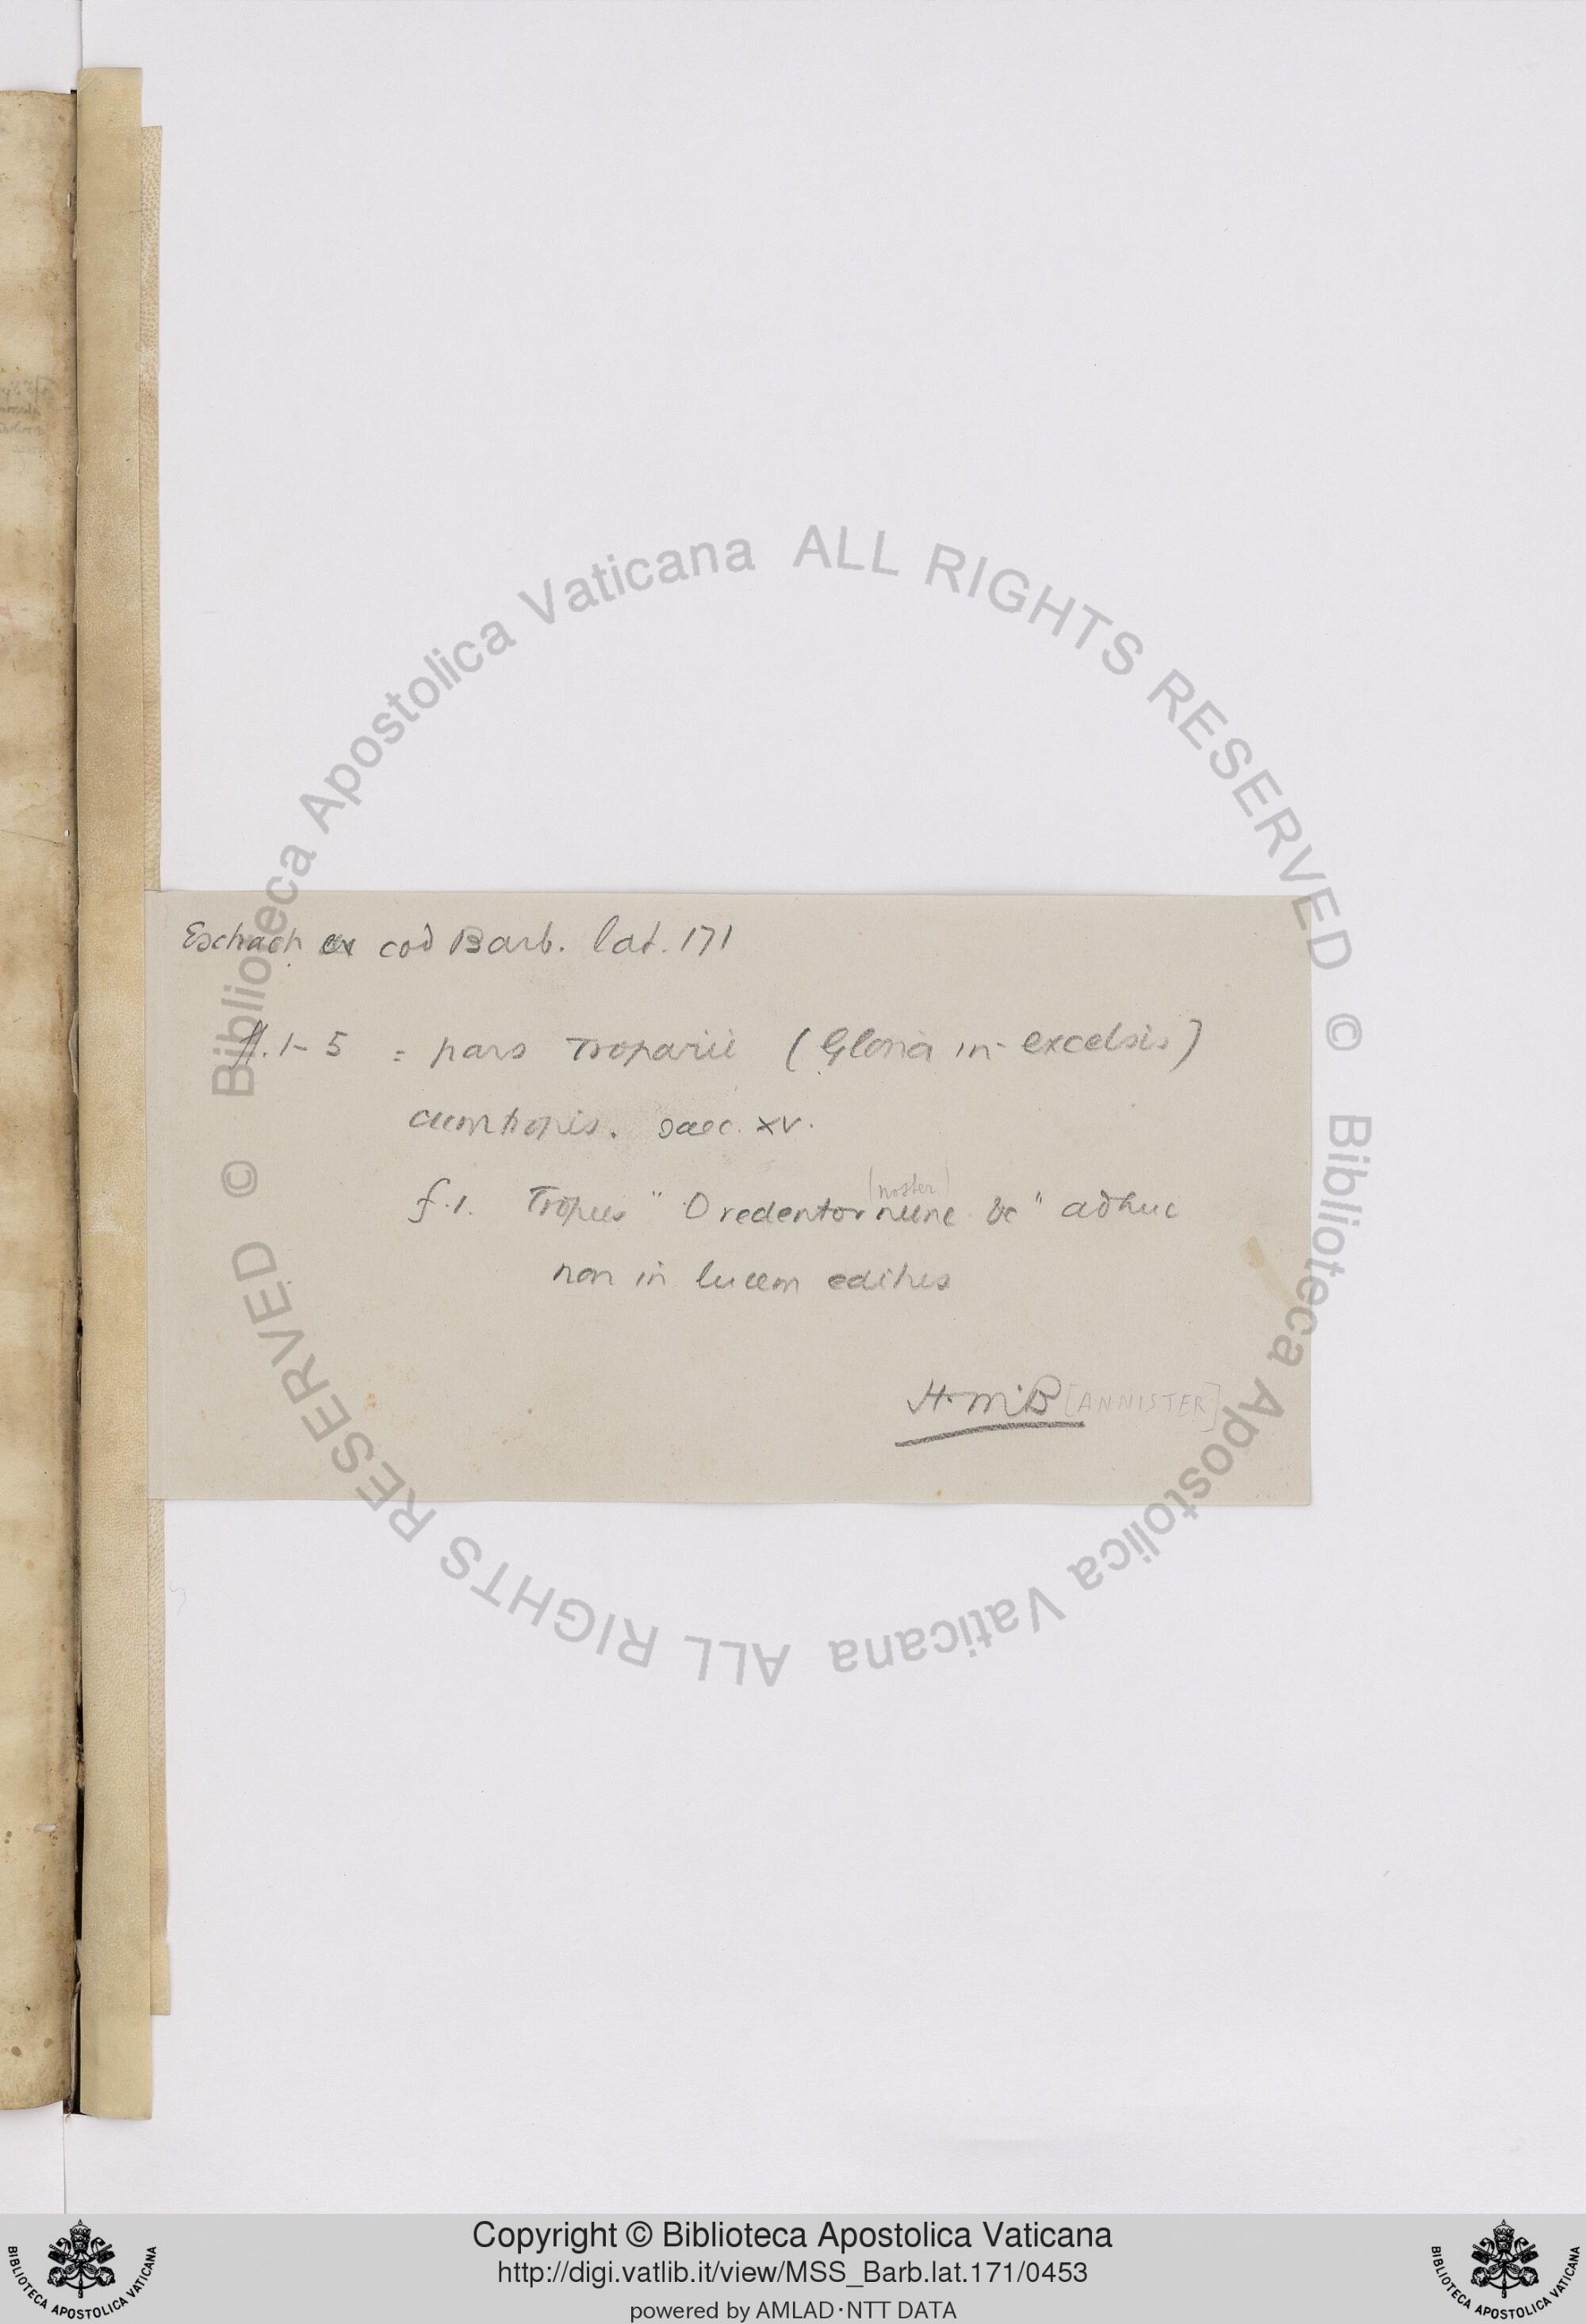 Eschach ex cod Barb. lat. 171
ff. 1-5 = pars Troparii (Gloria in excelsis)
cum tropis. saec. XV.
(noster)
f. 1. Tropus "O redentor nunc &c" adhuc
non in lucem editus
H. M. B [ANNISTER]
© Biblioteca Apostolica Vaticana ALL RIGHTS RESERVED
© Biblioteca Apostolica Vaticana ALL RIGHTS RESERVED
Copyright © Biblioteca Apostolica Vaticana
http://digi.vatlib.it/view/MSS_Barb.lat.171/0453
powered by AMLAD·NTT DATA
BIBLIOTECA APOSTOLICA VATICANA
BIBLIOTECA APOSTOLICA VATICANA